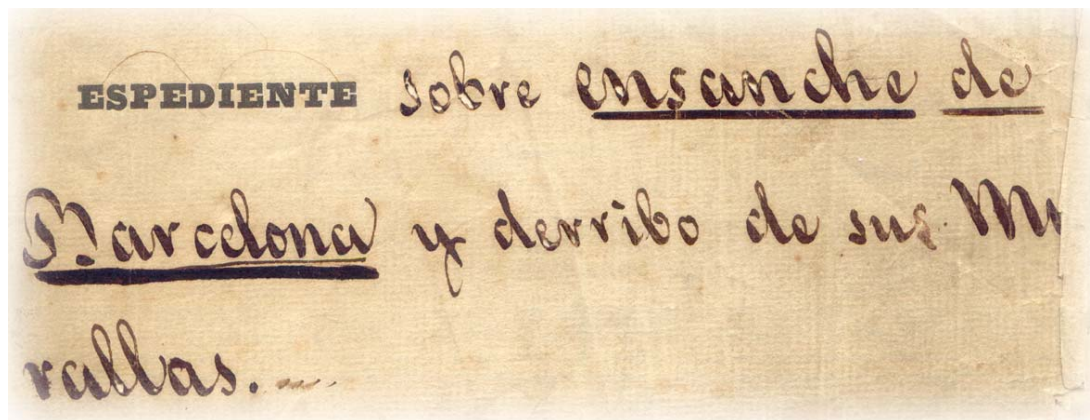 ESPEDIENTE sobre ensanche de
Barcelona y derribo de sus Mu
rallas.